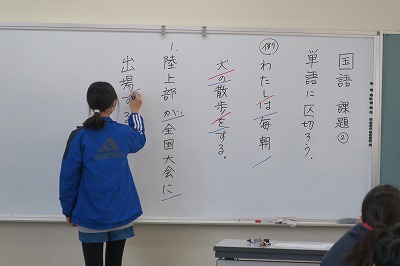 国語 課題②
単語に区切ろう。
例 わたしは毎朝
犬の散歩をする。
1. 陸上部が全国大会に
出場する